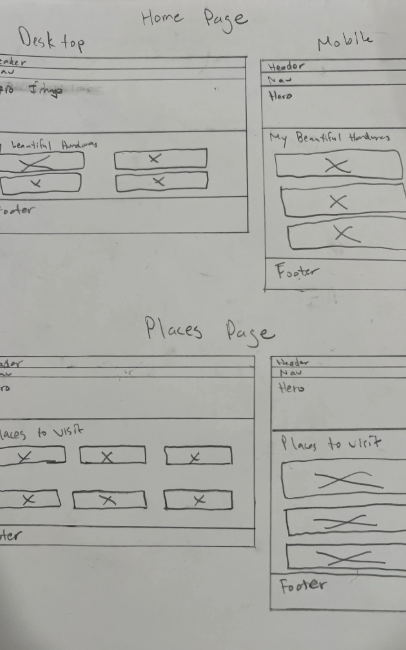 Home Page
Desktop
Mobile
eader
Nav
ero Image
y beautiful Honduras
ooter
Header
Nav
Hero
My Beautiful Honduras
Footer
Places Page
ader
ro
laces to visit
ter
Header
Nav
Hero
Places to visit
Footer